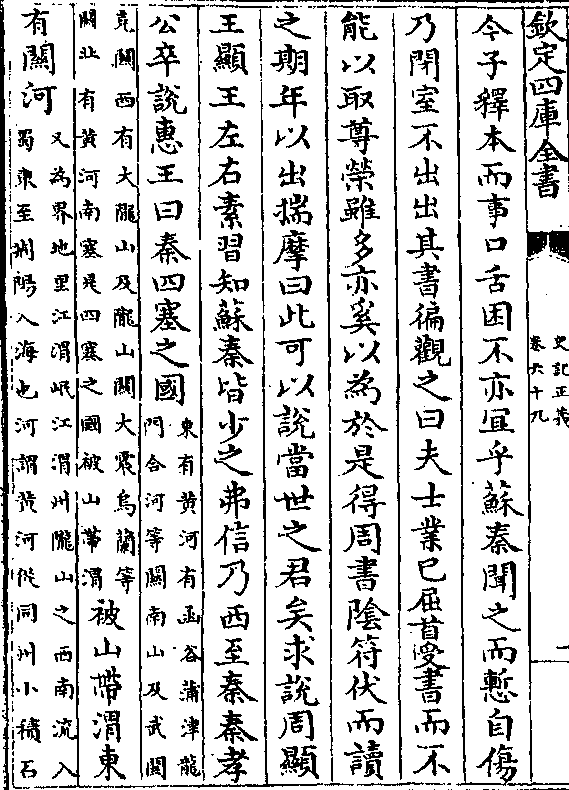 欽定四庫全書
史記正義
卷六十九
一
今子釋本而事口舌困不亦宜乎蘇秦聞之而慙自傷
乃閉室不出出其書徧觀之曰夫士業已屈首受書而不
能以取尊榮雖多亦奚以為於是得周書陰符伏而讀
之期年以出揣摩曰此可以說當世之君矣求說周顯
王顯王左右素習知蘇秦皆少之弗信乃西至秦秦孝
公卒說惠王曰秦四塞之國
東有黄河有函谷蒲津龍
門合河等關南山及武關
堯關西有大隴山及隴山關大震烏蘭等
關北有黄河南塞是四塞之國被山帶渭
被山帶渭東
有關河
又為界地里江渭岷江渭州隴山之西南流入
蜀東至荆陽入海也河謂黄河從同州小積石